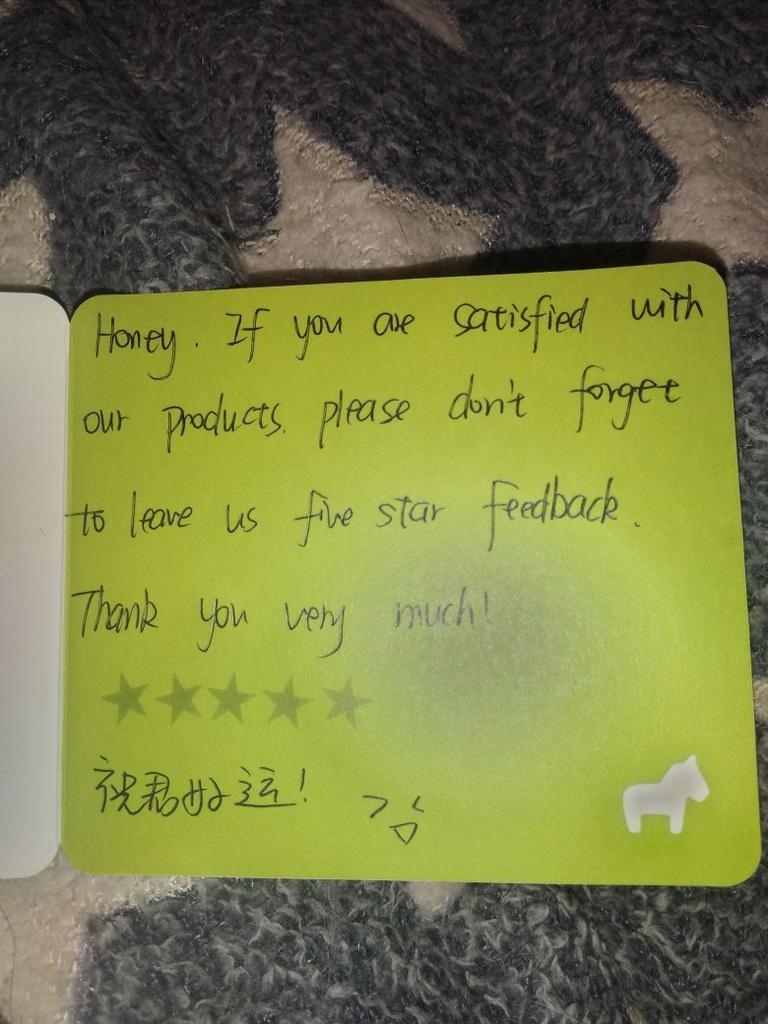 Honey. If you are satisfied with
our products. please don't forget
to leave us five star feedback.
Thank you very much!
★★★★★
祝君好运!